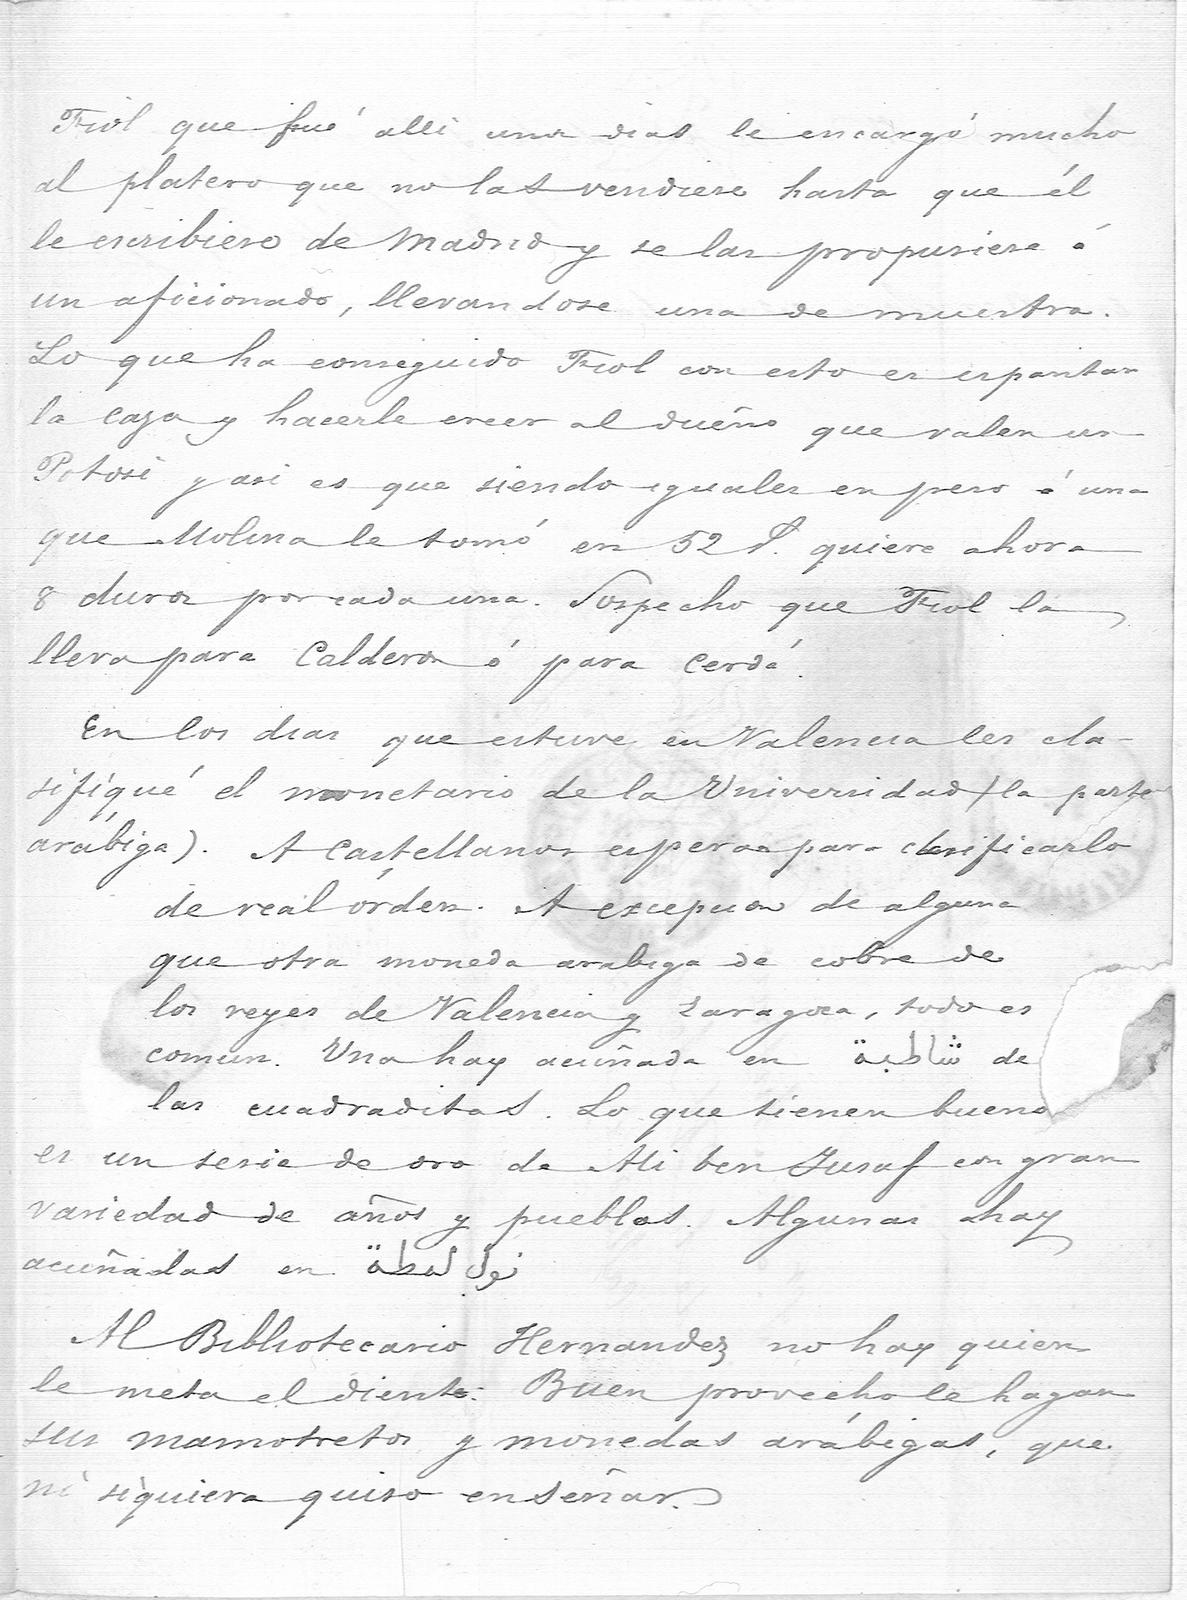 Fiol que fué alli unos dias le encargó mucho
al platero que no las vendiese hasta que él
le escribiese de Madrid y se las propusiese á
un aficionado, llevandose una de muestra.
Lo que ha conseguido Fiol con esto es espantar
la caza y hacerle creer al dueño que valen un
Potosí y asi es que siendo iguales en peso á una
que Molina le tomó en 52 P. quiere ahora
8 duros por cada una. Sospecho que Fiol la
lleva para Calderon ó para Cerdá.
En los dias que estuve en Valencia les cla-
sifiqué el monetario de la Universidad (la parte
arábiga). A Castellanos esperan para clasificarlo
de real órden. A excepcion de alguna
que otra moneda arabiga de cobre de
los reyes de Valencia y Zaragoza, todo es
comun. Una hay acuñada en شاطبة de
las cuadraditas. Lo que tienen bueno
es un serie de oro de Ali ben Jusaf con gran
variedad de años y pueblos. Algunas hay
acuñadas en نول لمطة
Al Bibliotecario Hernandez no hay quien
le meta el diente. Buen provecho le hagan
sus mamotretos y monedas arábigas, que
ni siquiera quiso enseñar.